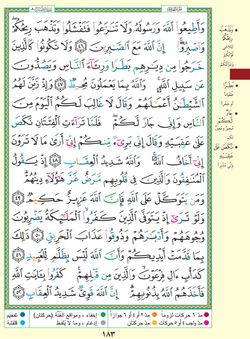 وَأَطِيعُوا۟ ٱللَّهَ وَرَسُولَهُۥ وَلَا تَنَٰزَعُوا۟ فَتَفْشَلُوا۟ وَتَذْهَبَ رِيحُكُمْ
وَٱصْبِرُوٓا۟ إِنَّ ٱللَّهَ مَعَ ٱلصَّٰبِرِينَ ٤٦ وَلَا تَكُونُوا۟ كَٱلَّذِينَ
خَرَجُوا۟ مِن دِيَٰرِهِم بَطَرًا وَرِئَآءَ ٱلنَّاسِ وَيَصُدُّونَ
عَن سَبِيلِ ٱللَّهِ وَٱللَّهُ بِمَا يَعْمَلُونَ مُحِيطٌ ٤٧ وَإِذْ زَيَّنَ لَهُمُ
ٱلشَّيْطَٰنُ أَعْمَٰلَهُمْ وَقَالَ لَا غَالِبَ لَكُمُ ٱلْيَوْمَ مِنَ
ٱلنَّاسِ وَإِنِّى جَارٌ لَّكُمْ فَلَمَّا تَرَآءَتِ ٱلْفِئَتَانِ نَكَصَ
عَلَىٰ عَقِبَيْهِ وَقَالَ إِنِّى بَرِىٓءٌ مِّنكُمْ إِنِّىٓ أَرَىٰ مَا لَا تَرَوْنَ
إِنِّىٓ أَخَافُ ٱللَّهَ وَٱللَّهُ شَدِيدُ ٱلْعِقَابِ ٤٨ إِذْ يَقُولُ
ٱلْمُنَٰفِقُونَ وَٱلَّذِينَ فِى قُلُوبِهِم مَّرَضٌ غَرَّ هَٰٓؤُلَآءِ دِينُهُمْ
وَمَن يَتَوَكَّلْ عَلَى ٱللَّهِ فَإِنَّ ٱللَّهَ عَزِيزٌ حَكِيمٌ ٤٩
وَلَوْ تَرَىٰٓ إِذْ يَتَوَفَّى ٱلَّذِينَ كَفَرُوا۟ ٱلْمَلَٰٓئِكَةُ يَضْرِبُونَ
وُجُوهَهُمْ وَأَدْبَٰرَهُمْ وَذُوقُوا۟ عَذَابَ ٱلْحَرِيقِ ٥٠
ذَٰلِكَ بِمَا قَدَّمَتْ أَيْدِيكُمْ وَأَنَّ ٱللَّهَ لَيْسَ بِظَلَّٰمٍ لِّلْعَبِيدِ ٥١
كَدَأْبِ ءَالِ فِرْعَوْنَ وَٱلَّذِينَ مِن قَبْلِهِمْ كَفَرُوا۟ بِـَٔايَٰتِ ٱللَّهِ
فَأَخَذَهُمُ ٱللَّهُ بِذُنُوبِهِمْ إِنَّ ٱللَّهَ قَوِىٌّ شَدِيدُ ٱلْعِقَابِ ٥٢
مدّ ٦ حركات لزوماً مدّ ٢ أو ٤ أو ٦ جوازاً إخفاء، ومواقع الغُنَّة (حركتان) تفخيم
مدّ واجب ٤ أو ٥ حركات مدّ حركتان إدغام، وما لا يُلفَظ قلقلة
١٨٣